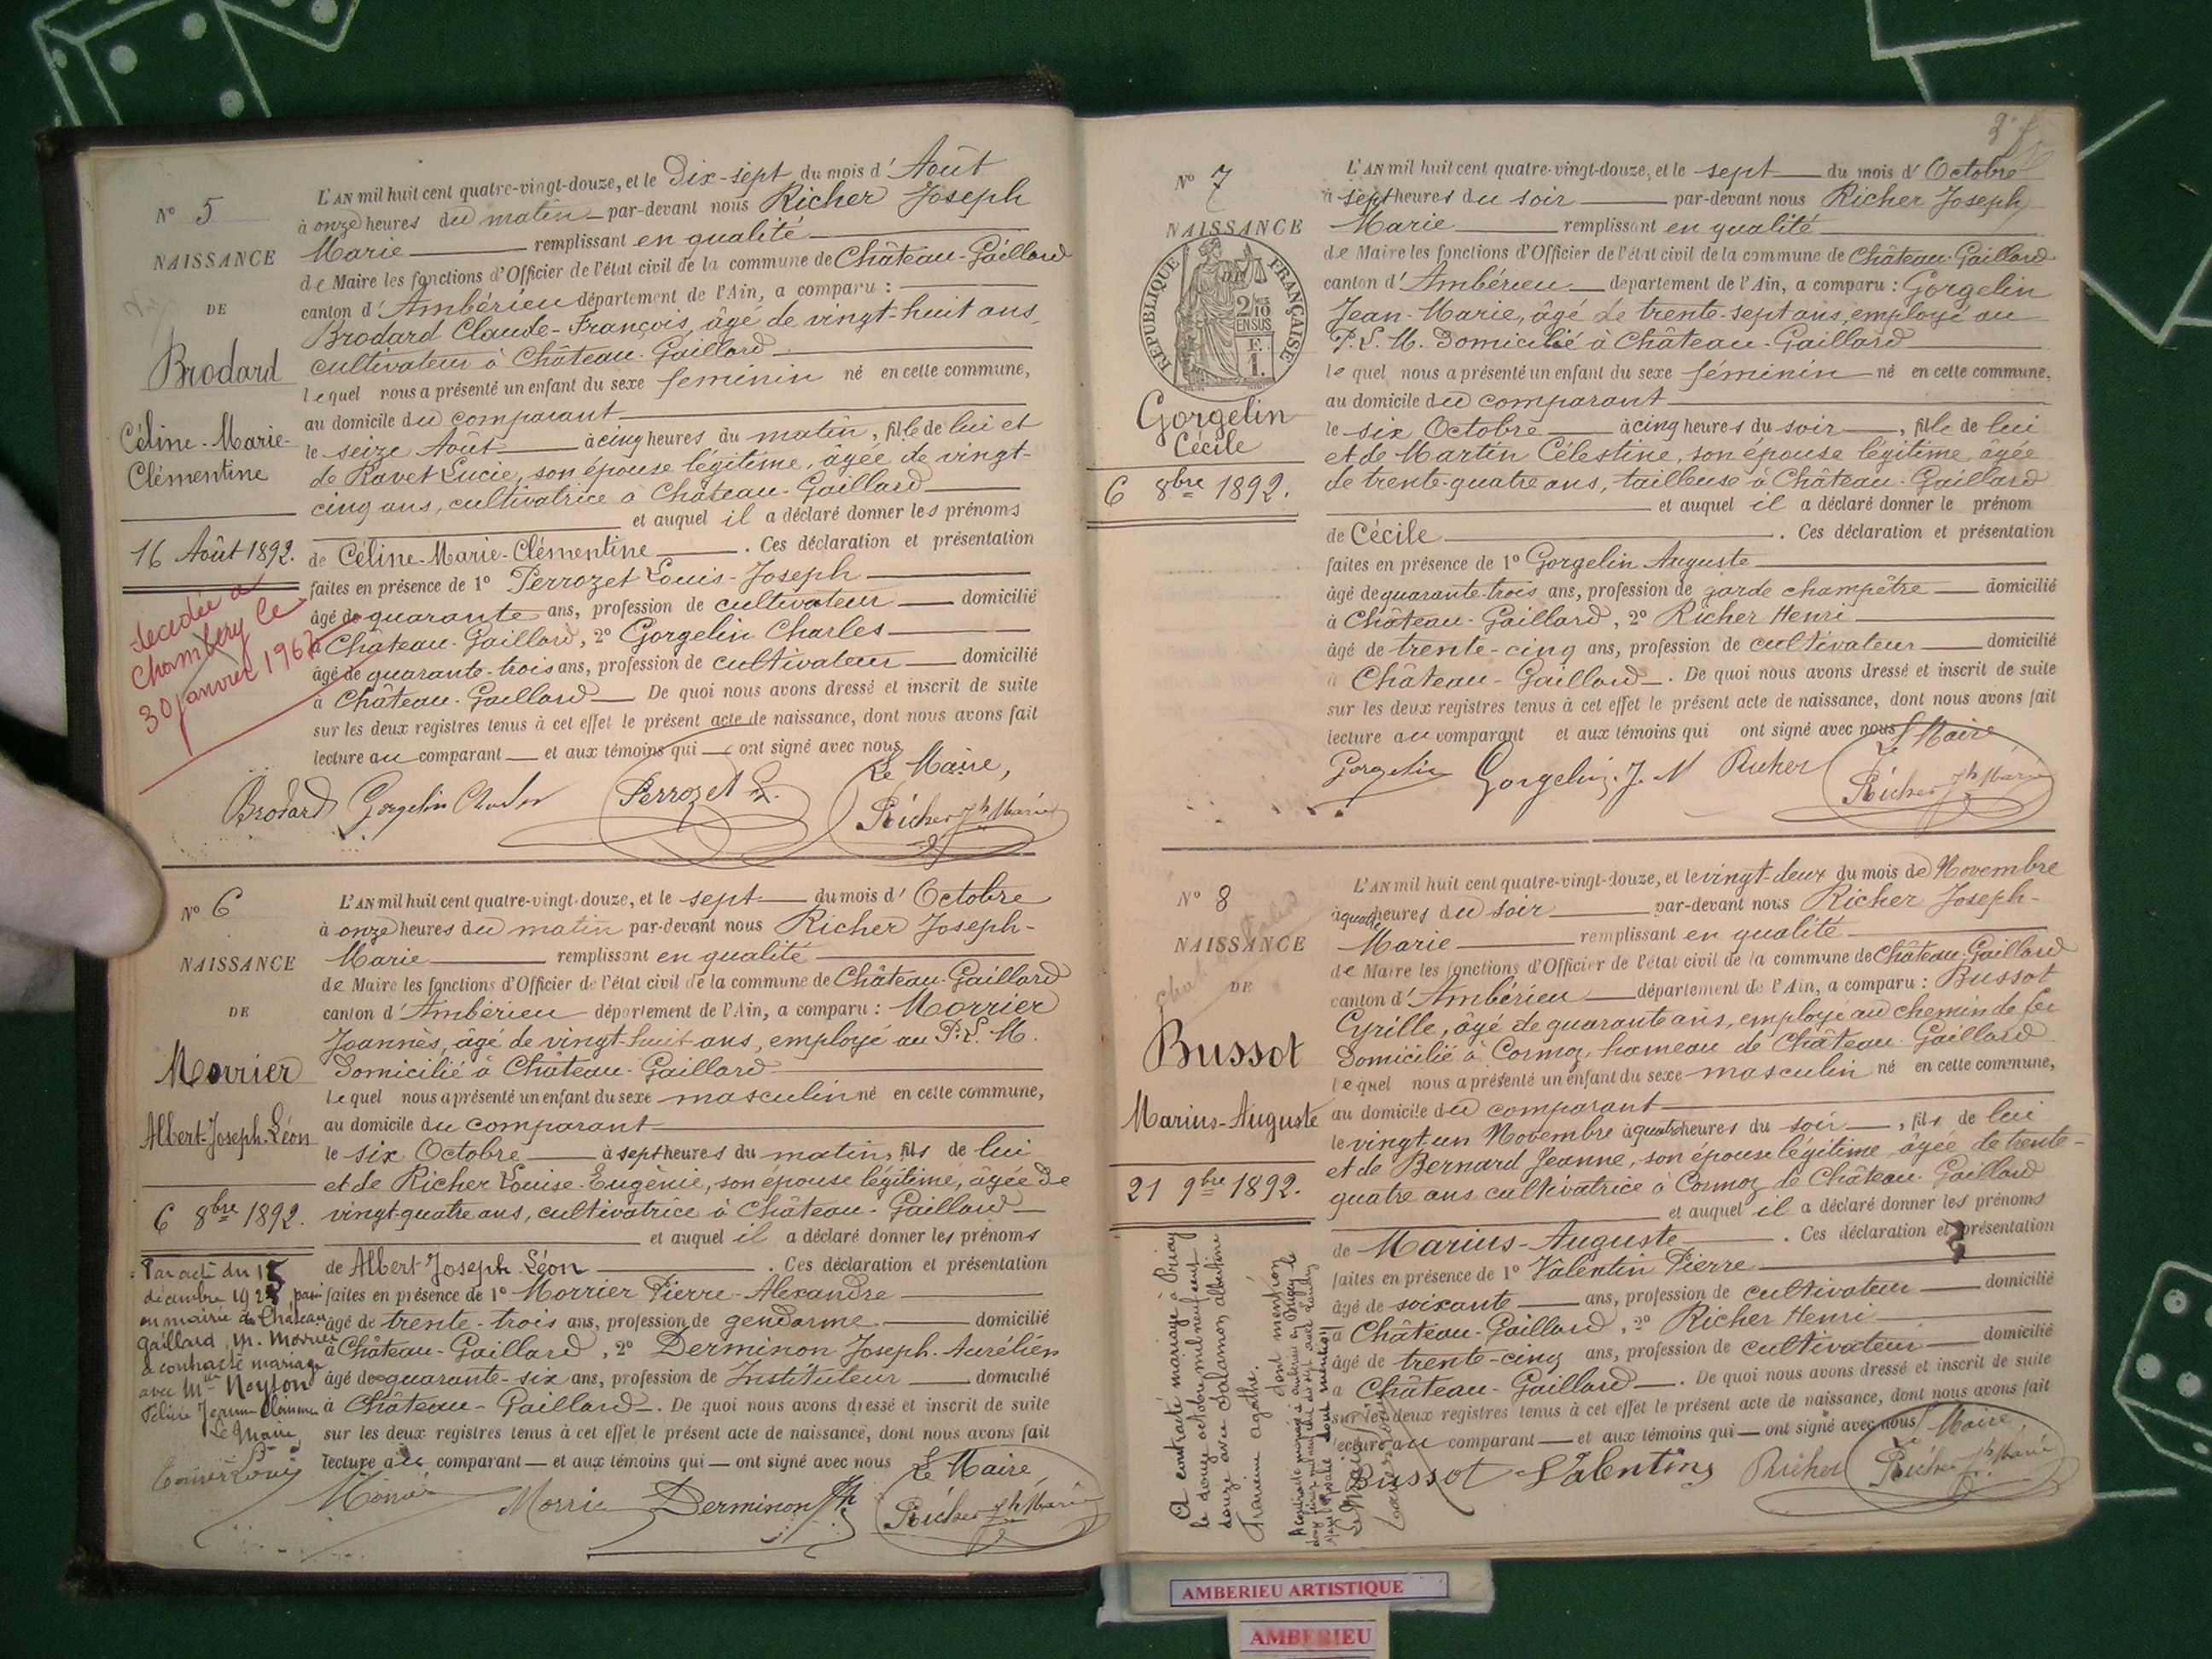 N° 5
NAISSANCE
DE
Brodard
Céline-Marie-
Clémentine
16 Août 1892.
decedée a
Chambery le
30 janvier 196
L'AN mil huit cent quatre-vingt-douze, et le Dix-sept du mois d' Août
à onze heures du matin par-devant nous Richer Joseph
Marie remplissant en qualité
de Maire les fonctions d'Officier de l'état civil de la commune de Château-Gaillard
canton d' Ambérieu département de l'Ain, a comparu :
Brodard Claude-François, âgé de vingt-huit ans,
cultivateur à Château-Gaillard
lequel nous a présenté un enfant du sexe féminin né en cette commune,
au domicile du comparant
le seize Août à cinq heures du matin, fille de lui et
de Ravet Lucie, son épouse légitime, âgée de vingt-
cinq ans, cultivatrice à Château-Gaillard
et auquel il a déclaré donner les prénoms
de Céline-Marie-Clémentine . Ces déclaration et présentation
faites en présence de 1° Perrozet Louis-Joseph
âgé de quarante ans, profession de cultivateur domicilié
à Château-Gaillard, 2° Gorgelin Charles
âgé de quarante-trois ans, profession de cultivateur domicilié
à Château-Gaillard De quoi nous avons dressé et inscrit de suite
sur les deux registres tenus à cet effet le présent acte de naissance, dont nous avons fait
lecture au comparant et aux témoins qui ont signé avec nous
Le Maire,
Brodard Gorgelin Charles Perrozet L. Richer Jh Marie
N° 6
NAISSANCE
DE
Morrier
Albert-Joseph-Léon
6 8bre 1892.
Par acte du 15
décembre 192
en mairie de Château
Gaillard, M. Morrier
a contracté mariage
avec Melle Neyton
Jeanne
Le Maire,
L'AN mil huit cent quatre-vingt-douze, et le sept du mois d' Octobre
à onze heures du matin par-devant nous Richer Joseph-
Marie remplissant en qualité
de Maire les fonctions d'Officier de l'état civil de la commune de Château-Gaillard
canton d' Ambérieu département de l'Ain, a comparu : Morrier
Joannès, âgé de vingt-huit ans, employé au P.L.M.
domicilié à Château-Gaillard
lequel nous a présenté un enfant du sexe masculin né en cette commune,
au domicile du comparant
le six Octobre à sept heures du matin, fils de lui
et de Richer Louise-Eugénie, son épouse légitime, âgée de
vingt-quatre ans, cultivatrice à Château-Gaillard
et auquel il a déclaré donner les prénoms
de Albert Joseph Léon . Ces déclaration et présentation
faites en présence de 1° Morrier Pierre-Alexandre
âgé de trente-trois ans, profession de gendarme domicilié
à Château-Gaillard, 2° Derminon Joseph-Aurélien
âgé de quarante-six ans, profession de Instituteur domicilié
à Château-Gaillard. De quoi nous avons dressé et inscrit de suite
sur les deux registres tenus à cet effet le présent acte de naissance, dont nous avons fait
lecture au comparant et aux témoins qui ont signé avec nous
Le Maire
Morrier Derminon Jh Richer Jh Marie
N° 7
NAISSANCE
RÉPUBLIQUE FRANÇAISE
2/10
EN SUS
F.
1.
Gorgelin
Cécile
6 8bre 1892.
L'AN mil huit cent quatre-vingt-douze, et le sept du mois d' Octobre
à sept heures du soir par-devant nous Richer Joseph
Marie remplissant en qualité
de Maire les fonctions d'Officier de l'état civil de la commune de Château-Gaillard
canton d' Ambérieu département de l'Ain, a comparu : Gorgelin
Jean-Marie, âgé de trente-sept ans, employé au
P.L.M. domicilié à Château-Gaillard
lequel nous a présenté un enfant du sexe féminin né en cette commune,
au domicile du comparant
le six Octobre à cinq heures du soir, fille de lui
et de Martin Célestine, son épouse légitime, âgée
de trente-quatre ans, tailleuse à Château-Gaillard
et auquel il a déclaré donner le prénom
de Cécile . Ces déclaration et présentation
faites en présence de 1° Gorgelin Auguste
âgé de quarante-trois ans, profession de garde champêtre domicilié
à Château-Gaillard, 2° Richer Henri
âgé de trente-cinq ans, profession de cultivateur domicilié
à Château-Gaillard. De quoi nous avons dressé et inscrit de suite
sur les deux registres tenus à cet effet le présent acte de naissance, dont nous avons fait
lecture au comparant et aux témoins qui ont signé avec nous
Le Maire
Gorgelin Gorgelin J. M Richer Richer Jh Marie
N° 8
NAISSANCE
DE
Bussot
Marius-Auguste
21 9bre 1892.
A contracté mariage à Priay
le douze octobre mil neuf cent
douze avec Salamon albertine
Framine agathe.
dont mention
L'AN mil huit cent quatre-vingt-douze, et le vingt-deux du mois de Novembre
à quatre heures du soir par-devant nous Richer Joseph-
Marie remplissant en qualité
de Maire les fonctions d'Officier de l'état civil de la commune de Château-Gaillard
canton d' Ambérieu département de l'Ain, a comparu : Bussot
Cyrille, âgé de quarante ans, employé au chemin de fer
domicilié à Cormoz, hameau de Château-Gaillard
lequel nous a présenté un enfant du sexe masculin né en cette commune,
au domicile du comparant
le vingt-un Novembre à quatre heures du soir, fils de lui
et de Bernard Jeanne, son épouse légitime, âgée de trente-
quatre ans cultivatrice à Cormoz de Château-Gaillard
et auquel il a déclaré donner les prénoms
de Marius-Auguste . Ces déclaration et présentation
faites en présence de 1° Valentin Pierre
âgé de soixante ans, profession de cultivateur domicilié
à Château-Gaillard, 2° Richer Henri
âgé de trente-cinq ans, profession de cultivateur domicilié
à Château-Gaillard. De quoi nous avons dressé et inscrit de suite
sur les deux registres tenus à cet effet le présent acte de naissance, dont nous avons fait
lecture au comparant et aux témoins qui ont signé avec nous
Le Maire,
Bussot Valentin Richer Richer Jh Marie
AMBERIEU ARTISTIQUE
AMBERIEU